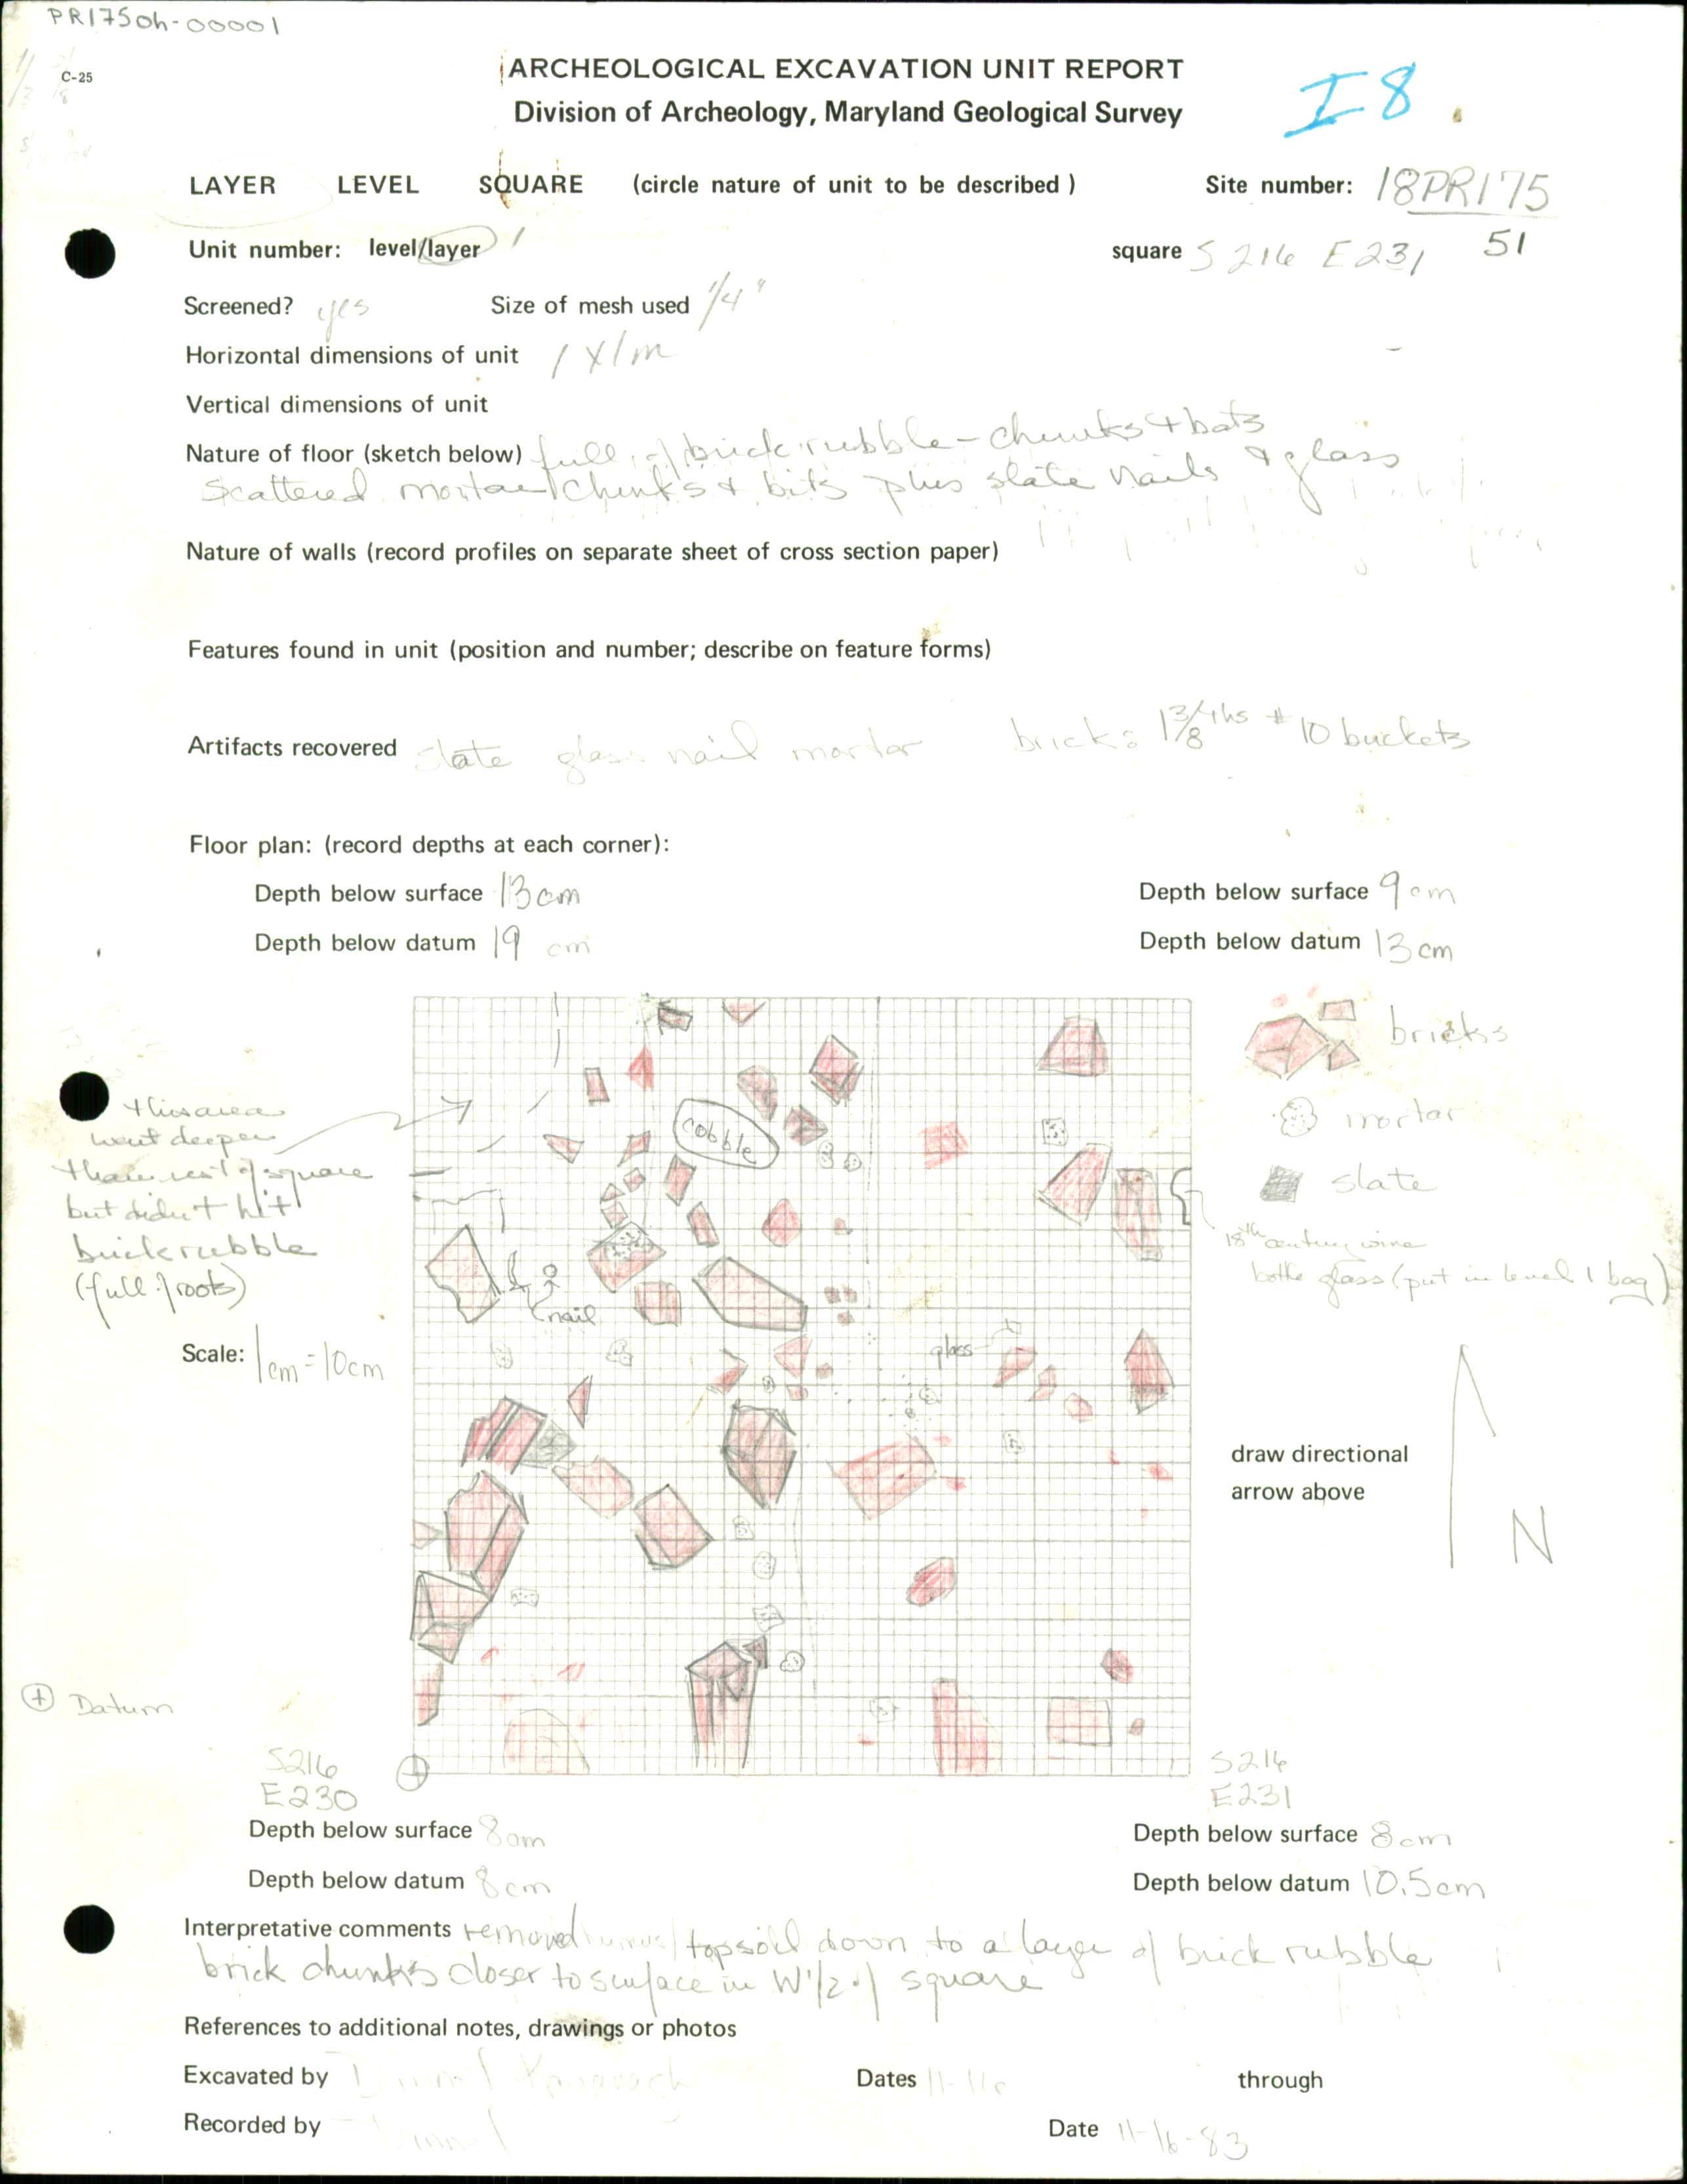 PR175Oh-00001
C-25
ARCHEOLOGICAL EXCAVATION UNIT REPORT
Division of Archeology, Maryland Geological Survey
I8
LAYER LEVEL SQUARE (circle nature of unit to be described ) Site number: 18PR175
Unit number: level/layer 1 square S 216 E231 51
Screened? yes Size of mesh used 1/4"
Horizontal dimensions of unit 1 X 1 m
Vertical dimensions of unit
Nature of floor (sketch below) full of brick rubble - chunks + bats
Scattered mortar chunks + bits plus slate nails + glass
Nature of walls (record profiles on separate sheet of cross section paper)
Features found in unit (position and number; describe on feature forms)
Artifacts recovered slate glass nail mortar brick: 10 buckets
Floor plan: (record depths at each corner):
Depth below surface 13cm Depth below surface 9cm
Depth below datum 19 cm Depth below datum 13cm
bricks
mortar
slate
18th century wine
bottle glass (put in level 1 bag)
this area
went deeper
than rest of square
but didn't hit
brick rubble
(full of roots)
cobble
nail
glass
Scale: 1cm = 10cm
draw directional
arrow above
N
Datum
S216
E230
S216
E231
Depth below surface 8cm Depth below surface 8cm
Depth below datum 8cm Depth below datum 10.5cm
Interpretative comments removed humus/topsoil down to a layer of brick rubble
brick chunks closer to surface in W 1/2 of square
References to additional notes, drawings or photos
Excavated by Dates 11-16 through
Recorded by Date 11-16-83